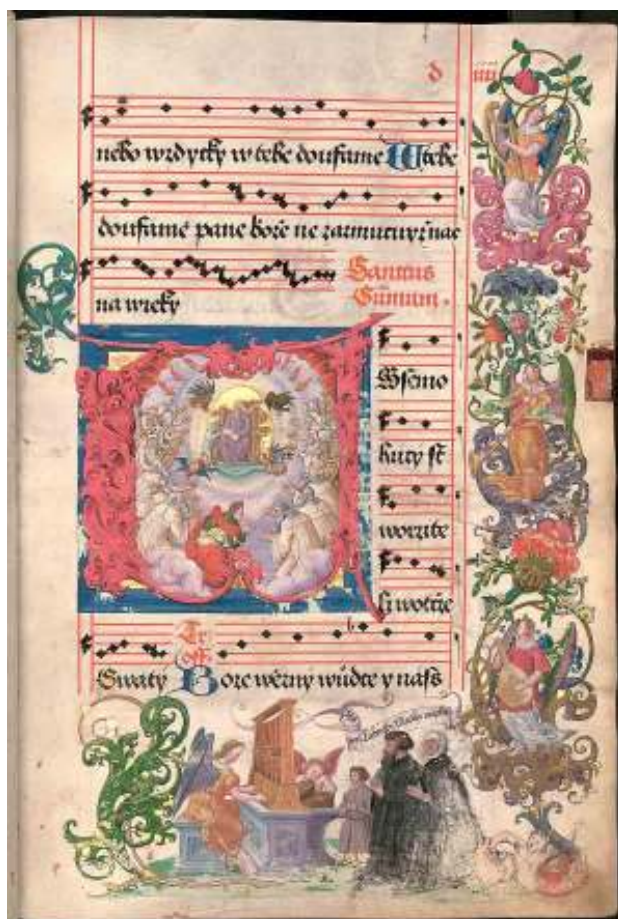 d iiii
nebo wzdytky w tebe doufame W tebe
doufame pane boże ne zarmutuyż nas
na wieky
Sanctus
Sumum.
Wsemo
huty st
worzite
li wotcże
Swaty Boże wěrny wůdce y naſs